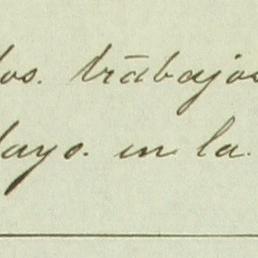 los. trabajos
layo. en la.